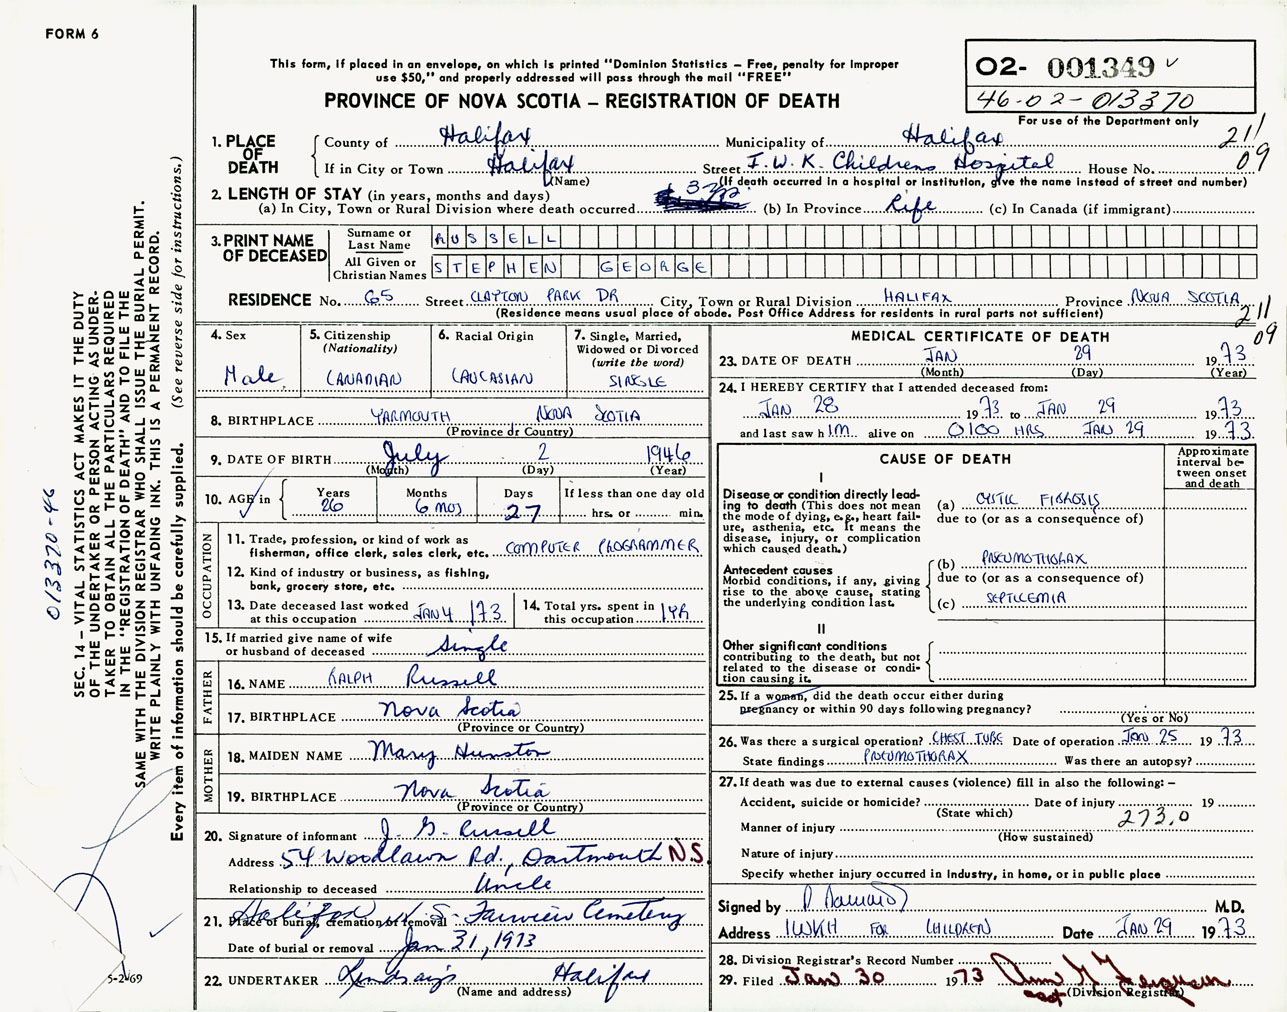 FORM 6
This form, if placed in an envelope, on which is printed "Dominion Statistics – Free, penalty for improper
use $50," and properly addressed will pass through the mail "FREE"
PROVINCE OF NOVA SCOTIA – REGISTRATION OF DEATH
02- 001349
46-02-013370
For use of the Department only
211
09
1. PLACE OF DEATH
County of Halifax Municipality of Halifax
If in City or Town Halifax Street I.W.K. Childrens Hospital House No.
(Name) (If death occurred in a hospital or institution, give the name instead of street and number)
2. LENGTH OF STAY (in years, months and days)
(a) In City, Town or Rural Division where death occurred (b) In Province Life (c) In Canada (if immigrant)
3. PRINT NAME OF DECEASED
Surname or Last Name RUSSELL
All Given or Christian Names STEPHEN GEORGE
RESIDENCE No. 65 Street CLAYTON PARK DR City, Town or Rural Division HALIFAX Province NOVA SCOTIA
(Residence means usual place of abode. Post Office Address for residents in rural parts not sufficient)
211
09
4. Sex
Male
5. Citizenship
(Nationality)
CANADIAN
6. Racial Origin
CAUCASIAN
7. Single, Married,
Widowed or Divorced
(write the word)
SINGLE
8. BIRTHPLACE YARMOUTH NOVA SCOTIA
(Province or Country)
9. DATE OF BIRTH July 2 1946
(Month) (Day) (Year)
10. AGE in
Years 26
Months 6 mos
Days 27
If less than one day old
hrs. or min.
OCCUPATION
11. Trade, profession, or kind of work as
fisherman, office clerk, sales clerk, etc. COMPUTER PROGRAMMER
12. Kind of industry or business, as fishing,
bank, grocery store, etc.
13. Date deceased last worked
at this occupation JAN 4 /73
14. Total yrs. spent in
this occupation 1 YR
15. If married give name of wife
or husband of deceased Single
FATHER
16. NAME RALPH Russell
17. BIRTHPLACE Nova Scotia
(Province or Country)
MOTHER
18. MAIDEN NAME Mary Hunston
19. BIRTHPLACE Nova Scotia
(Province or Country)
20. Signature of informant J. G. Russell
Address 54 Woodlawn Rd., Dartmouth N.S.
Relationship to deceased Uncle
21. Place of burial, cremation or removal Halifax N.S. Fairview Cemetery
Date of burial or removal Jan 31, 1973
22. UNDERTAKER Lindsay's Halifax
(Name and address)
MEDICAL CERTIFICATE OF DEATH
23. DATE OF DEATH JAN 29 1973
(Month) (Day) (Year)
24. I HEREBY CERTIFY that I attended deceased from:
JAN 28 1973 to JAN 29 1973
and last saw him alive on 0100 HRS JAN 29 1973
CAUSE OF DEATH
Approximate
interval be-
tween onset
and death
I
Disease or condition directly lead-
ing to death (This does not mean
the mode of dying, e.g., heart fail-
ure, asthenia, etc. It means the
disease, injury, or complication
which caused death.)
(a) CYSTIC FIBROSIS
due to (or as a consequence of)
Antecedent causes
Morbid conditions, if any, giving
rise to the above cause, stating
the underlying condition last.
(b) PNEUMOTHORAX
due to (or as a consequence of)
(c) SEPTICEMIA
II
Other significant conditions
contributing to the death, but not
related to the disease or condi-
tion causing it.
25. If a woman, did the death occur either during
pregnancy or within 90 days following pregnancy?
(Yes or No)
26. Was there a surgical operation? CHEST TUBE Date of operation JAN 25 1973
State findings PNEUMOTHORAX Was there an autopsy?
27. If death was due to external causes (violence) fill in also the following: –
Accident, suicide or homicide? Date of injury 19
(State which)
273.0
Manner of injury
(How sustained)
Nature of injury
Specify whether injury occurred in industry, in home, or in public place
Signed by M.D.
Address IWKH FOR CHILDREN Date JAN 29 1973
28. Division Registrar's Record Number
29. Filed Jan 30 1973 Ferguson
(Division Registrar)
SEC. 14 – VITAL STATISTICS ACT MAKES IT THE DUTY
OF THE UNDERTAKER OR PERSON ACTING AS UNDER-
TAKER TO OBTAIN ALL THE PARTICULARS REQUIRED
IN THE "REGISTRATION OF DEATH" AND TO FILE THE
SAME WITH THE DIVISION REGISTRAR WHO SHALL ISSUE THE BURIAL PERMIT.
WRITE PLAINLY WITH UNFADING INK. THIS IS A PERMANENT RECORD.
Every item of information should be carefully supplied. (See reverse side for instructions.)
013370-46
5-2-69